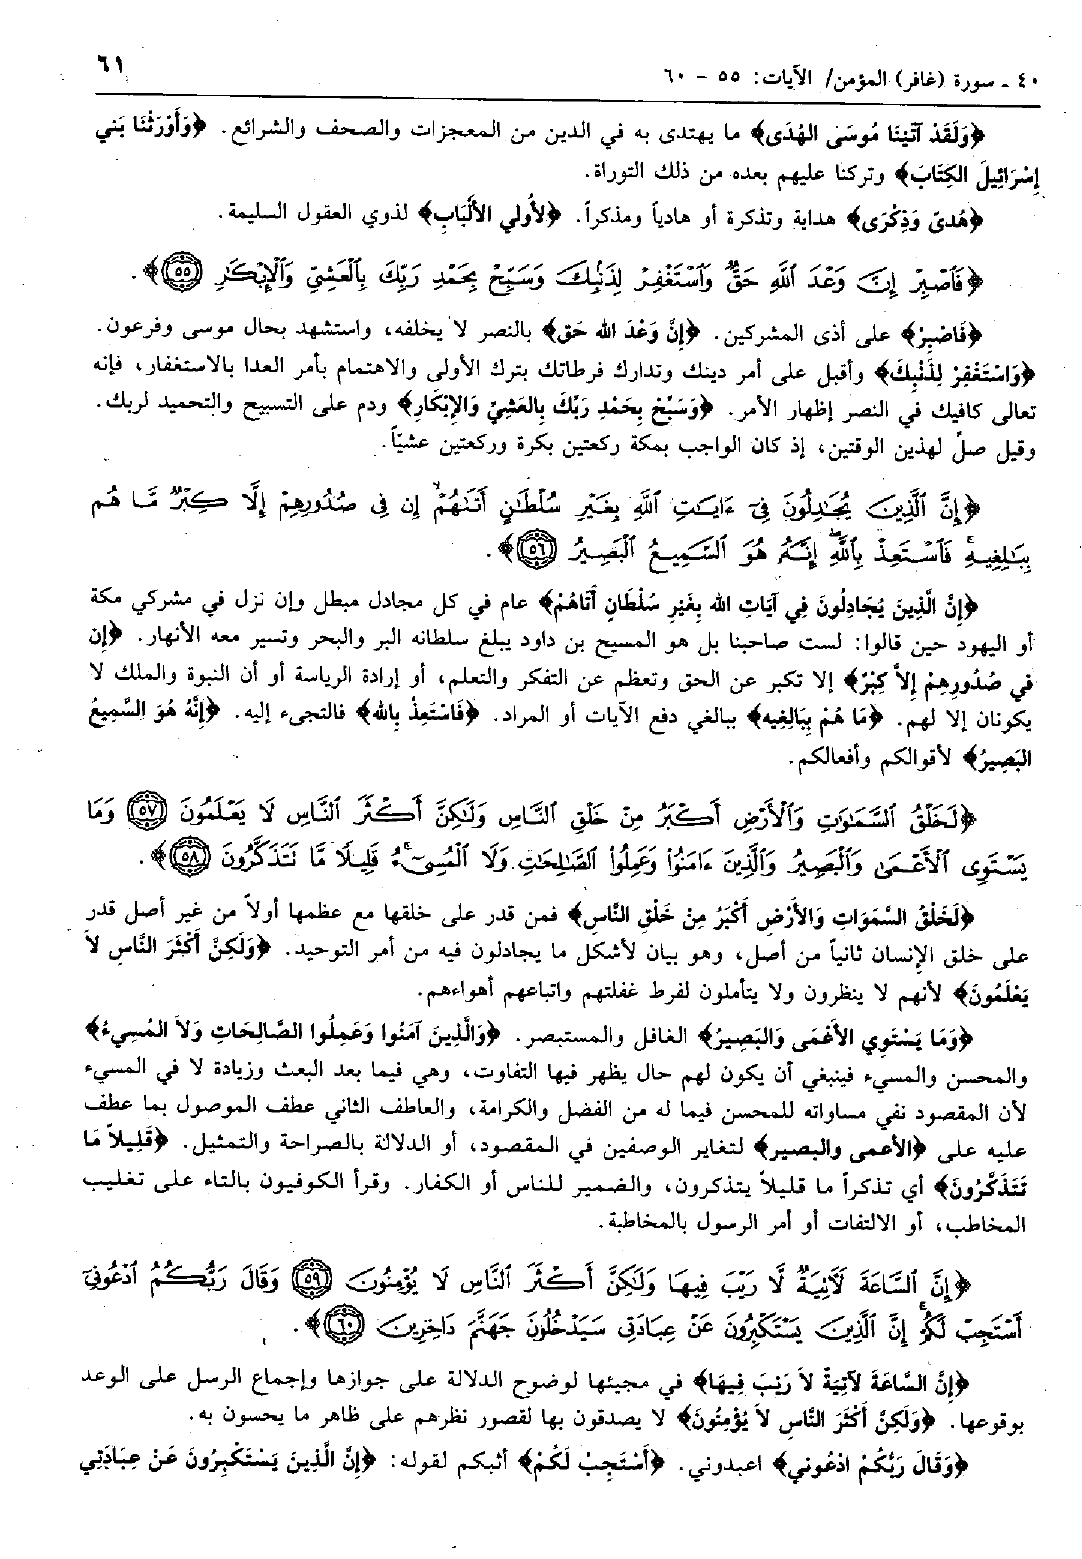 ٤٠ ـ سورة (غافر) المؤمن/ الآيات: ٥٥ - ٦٠
٦١
﴿وَلَقَدْ آتَيْنَا مُوسَى الهُدَى﴾ ما يهتدى به في الدين من المعجزات والصحف والشرائع. ﴿وَأَوْرَثْنَا بَني
إِسْرَائِيلَ الكِتَابَ﴾ وتركنا عليهم بعده من ذلك التوراة.
﴿هُدىً وَذِكْرَى﴾ هداية وتذكرة أو هادياً ومذكراً. ﴿لأُولي الأَلْبَابِ﴾ لذوي العقول السليمة.
﴿فَاصْبِرْ إِنَّ وَعْدَ اللَّهِ حَقٌّ وَاسْتَغْفِرْ لِذَنْبِكَ وَسَبِّحْ بِحَمْدِ رَبِّكَ بِالْعَشِيِّ وَالْإِبْكَارِ ﴿٥٥﴾﴾.
﴿فَاصْبِرْ﴾ على أذى المشركين. ﴿إِنَّ وَعْدَ الله حَق﴾ بالنصر لا يخلفه، واستشهد بحال موسى وفرعون.
﴿وَاسْتَغْفِرْ لِذَنْبِكَ﴾ وأقبل على أمر دينك وتدارك فرطاتك بترك الأولى والاهتمام بأمر العدا بالاستغفار، فإنه
تعالى كافيك في النصر إظهار الأمر. ﴿وَسَبِّحْ بِحَمْدِ رَبِّكَ بِالعَشِيِّ وَالإِبْكَارِ﴾ ودم على التسبيح والتحميد لربك.
وقيل صلِّ لهذين الوقتين، إذ كان الواجب بمكة ركعتين بكرة وركعتين عشيّاً.
﴿إِنَّ الَّذِينَ يُجَادِلُونَ فِي ءَايَاتِ اللَّهِ بِغَيْرِ سُلْطَانٍ أَتَاهُمْ إِن فِي صُدُورِهِمْ إِلَّا كِبْرٌ مَّا هُم
بِبَالِغِيهِ فَاسْتَعِذْ بِاللَّهِ إِنَّهُ هُوَ السَّمِيعُ الْبَصِيرُ ﴿٥٦﴾﴾.
﴿إِنَّ الَّذِينَ يُجَادِلُونَ فِي آيَاتِ الله بِغَيْرِ سُلْطَانٍ أَتَاهُمْ﴾ عام في كل مجادل مبطل وإن نزل في مشركي مكة
أو اليهود حين قالوا: لست صاحبنا بل هو المسيح بن داود يبلغ سلطانه البر والبحر وتسير معه الأنهار. ﴿إِن
في صُدُورِهِمْ إِلاَّ كِبْرٌ﴾ إلا تكبر عن الحق وتعظم عن التفكر والتعلم، أو إرادة الرياسة أو أن النبوة والملك لا
يكونان إلا لهم. ﴿مَا هُمْ بِبَالِغِيه﴾ ببالغي دفع الآيات أو المراد. ﴿فَاسْتَعِذْ بِالله﴾ فالتجىء إليه. ﴿إِنَّهُ هُوَ السَّمِيعُ
البَصِيرُ﴾ لأقوالكم وأفعالكم.
﴿لَخَلْقُ السَّمَاوَاتِ وَالْأَرْضِ أَكْبَرُ مِنْ خَلْقِ النَّاسِ وَلَكِنَّ أَكْثَرَ النَّاسِ لَا يَعْلَمُونَ ﴿٥٧﴾ وَمَا
يَسْتَوِي الْأَعْمَى وَالْبَصِيرُ وَالَّذِينَ ءَامَنُوا وَعَمِلُوا الصَّالِحَاتِ وَلَا الْمُسِيءُ قَلِيلًا مَّا تَتَذَكَّرُونَ ﴿٥٨﴾﴾.
﴿لَخَلْقُ السَّمَوَاتِ وَالأَرْضِ أَكْبَرُ مِنْ خَلْقِ النَّاسِ﴾ فمن قدر على خلقها مع عظمها أولاً من غير أصل قدر
على خلق الإنسان ثانياً من أصل، وهو بيان لأشكل ما يجادلون فيه من أمر التوحيد. ﴿وَلَكِنَّ أَكْثَرَ النَّاسِ لاَ
يَعْلَمُونَ﴾ لأنهم لا ينظرون ولا يتأملون لفرط غفلتهم واتباعهم أهواءهم.
﴿وَمَا يَسْتَوِي الأَعْمَى وَالبَصِيرُ﴾ الغافل والمستبصر. ﴿وَالَّذِينَ آمَنُوا وَعَمِلُوا الصَّالِحَاتِ وَلاَ المُسِيءُ﴾
والمحسن والمسيء فينبغي أن يكون لهم حال يظهر فيها التفاوت، وهي فيما بعد البعث وزيادة لا في المسيء
لأن المقصود نفي مساواته للمحسن فيما له من الفضل والكرامة، والعاطف الثاني عطف الموصول بما عطف
عليه على ﴿الأعمى والبصير﴾ لتغاير الوصفين في المقصود، أو الدلالة بالصراحة والتمثيل. ﴿قَلِيلاً مَا
تَتَذَكَّرُونَ﴾ أي تذكراً ما قليلاً يتذكرون، والضمير للناس أو الكفار. وقرأ الكوفيون بالتاء على تغليب
المخاطب، أو الالتفات أو أمر الرسول بالمخاطبة.
﴿إِنَّ السَّاعَةَ لَآتِيَةٌ لَّا رَيْبَ فِيهَا وَلَكِنَّ أَكْثَرَ النَّاسِ لَا يُؤْمِنُونَ ﴿٥٩﴾ وَقَالَ رَبُّكُمُ ادْعُونِي
أَسْتَجِبْ لَكُمْ إِنَّ الَّذِينَ يَسْتَكْبِرُونَ عَنْ عِبَادَتِي سَيَدْخُلُونَ جَهَنَّمَ دَاخِرِينَ ﴿٦٠﴾﴾.
﴿إِنَّ السَّاعَةَ لآتِيَةٌ لاَ رَيْبَ فِيهَا﴾ في مجيئها لوضوح الدلالة على جوازها وإجماع الرسل على الوعد
بوقوعها. ﴿وَلَكِنَّ أَكْثَرَ النَّاسِ لاَ يُؤْمِنُونَ﴾ لا يصدقون بها لقصور نظرهم على ظاهر ما يحسون به.
﴿وَقَالَ رَبُّكُمْ ادْعُوني﴾ اعبدوني. ﴿أَسْتَجِبْ لَكُمْ﴾ أثبكم لقوله: ﴿إِنَّ الَّذِينَ يَسْتَكْبِرُونَ عَنْ عِبَادَتِي